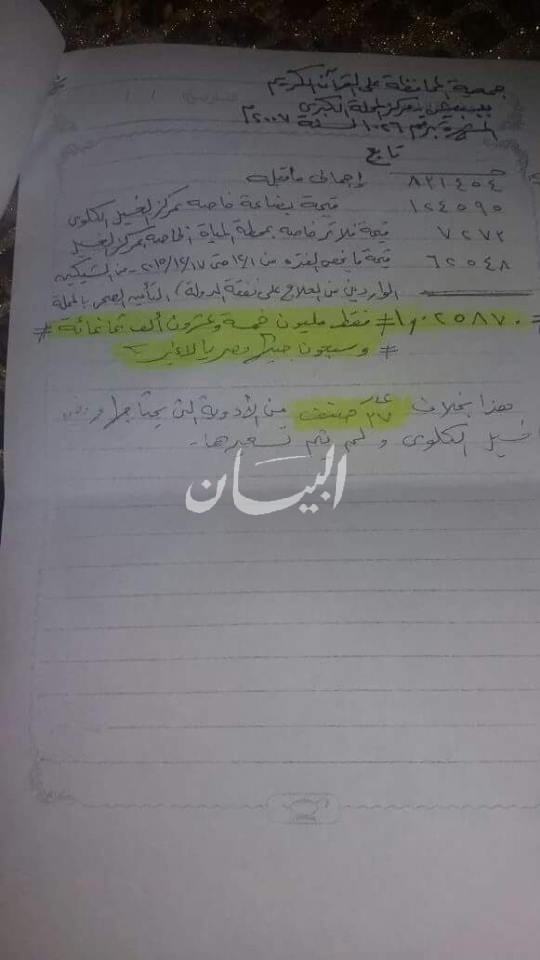 جمعية المحافظة على القرآن الكريم
مركز المحلة الكبرى
المشهرة برقم ١٠٢٦ لسنة ٢٠٠٧م
تابع
٨٣١٤٥٤ إجمالى ما قبله
١٢٤٥٩٥ قيمة بضاعة خاصة بمركز الغسيل الكلوى
٧٢٧٣ قيمة فلاتر خاصة بمحطة المياة الخاصة بمركز الغسيل
٦٢٥٤٨ قيمة ما يخص الفترة من ١٢/١ حتى ٢٠١٥/١٢/١٧ من الشيكين
الواردين من العلاج على نفقة الدولة / التأمين الصحى بالمحلة
# ١,٠٢٥٨٧٠ # فقط مليون خمسة وعشرون ألف ثمانمائة #
# وسبعون جنيها مصريا لاغير
هذا بخلاف عدد ٣٧ صنف من الأدوية التى يحتاجها
غسيل الكلوى ولم يتم تسعيرها.
البيان